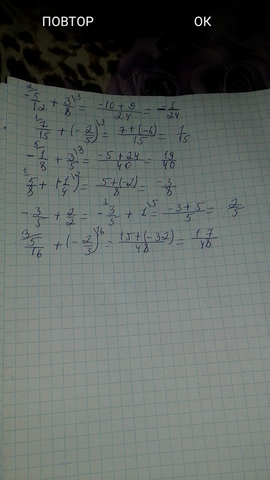 ПОВТОР ОК
-5/12 + 3/8 = -10+9/24 = -1/24
7/15 + (-2/5) = 7+(-6)/15 = 1/15
-1/8 + 3/5 = -5+24/40 = 19/40
5/8 + (-1/4) = 5+(-2)/8 = 3/8
-3/5 + 2/2 = -3/5 + 1 = -3+5/5 = 2/5
5/16 + (-2/3) = 15+(-32)/48 = 17/48